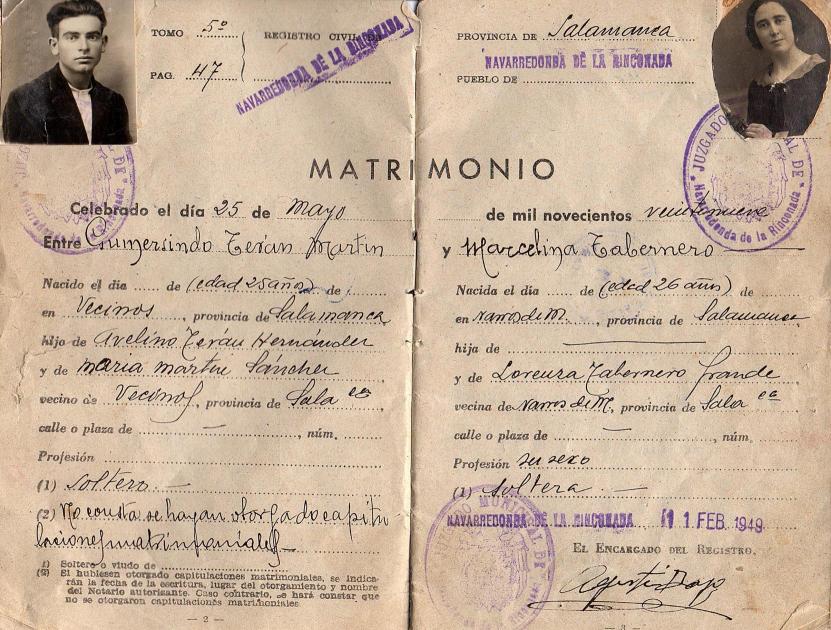 TOMO 5º REGISTRO CIVIL DE
NAVARREDONDA DE LA RINCONADA
PAG. 47
MATRIMONIO
Celebrado el día 25 de Mayo
Entre Gumersindo Terán Martín
Nacido el día ...... de (edad 25 años) de
en Vecinos, provincia de Salamanca
hijo de Avelino Terán Hernández
y de maria martín Sánchez
vecino de Vecinos, provincia de Sala ca
calle o plaza de —, núm.
Profesión
(1) Soltero. —
(2) No consta se hayan otorgado capitu
laciones matrimoniales —
1) Soltero o viudo de
(2) Si hubiesen otorgado capitulaciones matrimoniales, se indica-
rán la fecha de la escritura, lugar del otorgamiento y nombre
del Notario autorizante. Caso contrario, se hará constar que
no se otorgaron capitulaciones matrimoniales
— 2 —
PROVINCIA DE Salamanca
NAVARREDONDA DE LA RINCONADA
PUEBLO DE
JUZGADO MUNICIPAL DE
Navarredonda de la Rinconada
de mil novecientos veintinueve
y Marcelina Tabernero —
Nacida el día ...... de (edad 26 años) de
en Narros de M., provincia de Salamanca
hija de —
y de Lorenza Tabernero Grande
vecina de Narros de M., provincia de Sala ca
calle o plaza de —, núm.
Profesión su sexo
(1) Soltera. —
NAVARREDONDA DE LA RINCONADA 11 FEB. 1949
EL ENCARGADO DEL REGISTRO,
— 3 —